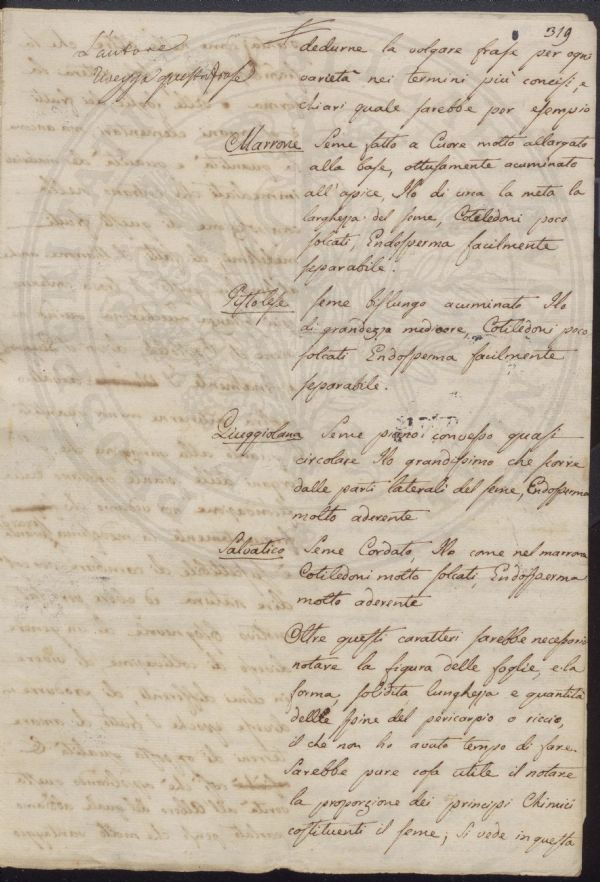 319
L'autore
questa frase
dedurne la volgare frase per ogni
varietà nei termini più concisi, e
chiari quale sarebbe per esempio
Marrone Seme fatto a Cuore molto allargato
alla base, ottusamente acuminato
all'apice, Ilo di una la metà la
larghezza del seme, Cotiledoni poco
solcati, Endosperma facilmente
separabile.
Pistolese Seme bislungo acuminato Ilo
di grandezza mediocre, Cotiledoni poco
solcati Endosperma facilmente
separabile.
Piuggiolana Seme piano convesso quasi
circolare Ilo grandissimo che scorre
dalle parti laterali del seme, Endosperma
molto aderente
Salvatico Seme Cordato, Ilo come nel marrone
Cotiledoni molto solcati, Endosperma
molto aderente
Oltre questi caratteri sarebbe necessario
notare la figura delle foglie, e la
forma solidità lunghezza e quantità
delle spine del pericarpio o riccio,
il che non ho avuto tempo di fare.
Sarebbe pure cosa utile il notare
la proporzione dei principj Chimici
costituenti il seme; si vede in questa